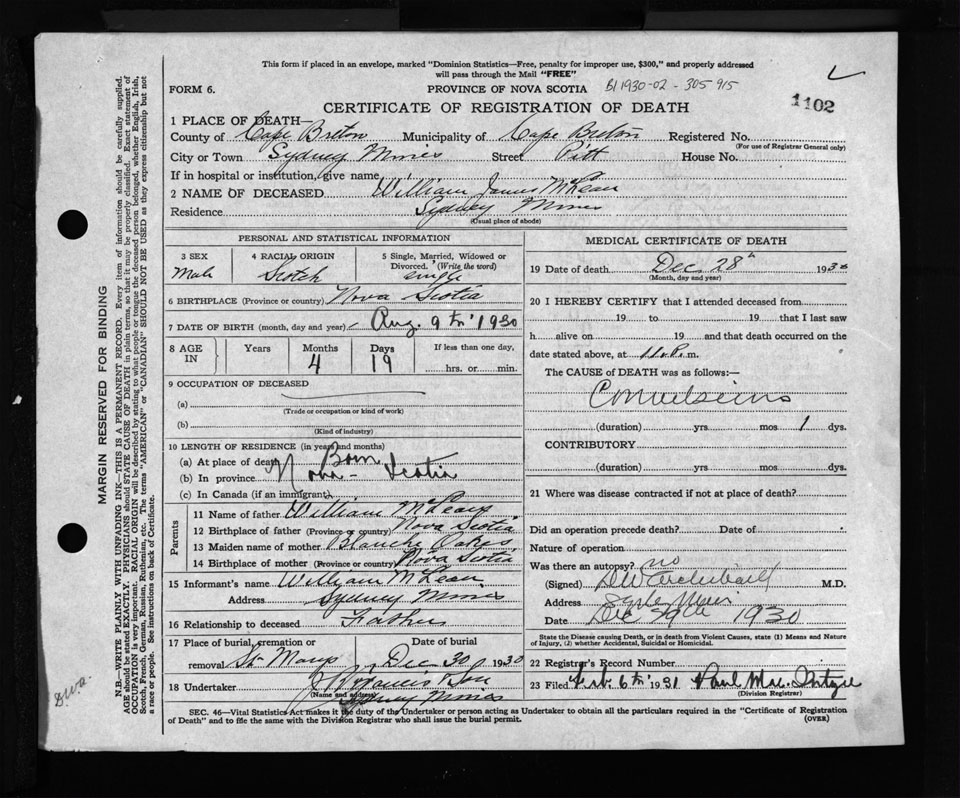 This form if placed in an envelope, marked "Dominion Statistics—Free, penalty for improper use, $300," and properly addressed
will pass through the Mail "FREE"
FORM 6. PROVINCE OF NOVA SCOTIA B11930-02-305915
1102
CERTIFICATE OF REGISTRATION OF DEATH
1 PLACE OF DEATH—
County of Cape Breton Municipality of Cape Breton Registered No.
(For use of Registrar General only)
City or Town Sydney Mines Street Pitt House No.
If in hospital or institution, give name
2 NAME OF DECEASED William James McLean
Residence Sydney Mines
(Usual place of abode)
PERSONAL AND STATISTICAL INFORMATION
3 SEX 4 RACIAL ORIGIN 5 Single, Married, Widowed or
Divorced. (Write the word)
Male Scotch Single
6 BIRTHPLACE (Province or country) Nova Scotia
7 DATE OF BIRTH (month, day and year) Aug. 9th 1930
8 AGE IN Years Months Days If less than one day,
4 19 hrs. or min.
9 OCCUPATION OF DECEASED
(a)
(Trade or occupation or kind of work)
(b)
(Kind of industry)
10 LENGTH OF RESIDENCE (in years and months)
(a) At place of death Born
(b) In province Nova-Scotia
(c) In Canada (if an immigrant)
Parents
11 Name of father William McLean
12 Birthplace of father (Province or country) Nova Scotia
13 Maiden name of mother Blanche Oakes
14 Birthplace of mother (Province or country) Nova Scotia
15 Informant's name William McLean
Address Sydney Mines
16 Relationship to deceased Father
17 Place of burial, cremation or Date of burial
removal St Marys Dec 30 1930
18 Undertaker & Son
(Name and address) Sydney Mines
MEDICAL CERTIFICATE OF DEATH
19 Date of death Dec 28th 1930
(Month, day and year)
20 I HEREBY CERTIFY that I attended deceased from
19 to 19 that I last saw
h alive on 19 and that death occurred on the
date stated above, at 11.P.m.
The CAUSE of DEATH was as follows:—
Convulsions
(duration) yrs. mos 1 dys.
CONTRIBUTORY
(duration) yrs. mos dys.
21 Where was disease contracted if not at place of death?
Did an operation precede death? Date of
Nature of operation
Was there an autopsy? no
(Signed) DW Archibald M.D.
Address Sydney Mines
Date Dec 29th 1930
State the Disease causing Death, or in death from Violent Causes, state (1) Means and Nature
of Injury, (2) whether Accidental, Suicidal or Homicidal.
22 Registrar's Record Number
23 Filed Feb. 6th 1931 Paul
(Division Registrar)
SEC. 46—Vital Statistics Act makes it the duty of the Undertaker or person acting as Undertaker to obtain all the particulars required in the "Certificate of Registration
of Death" and to file the same with the Division Registrar who shall issue the burial permit. (OVER)
MARGIN RESERVED FOR BINDING
N.B.—WRITE PLAINLY WITH UNFADING INK—THIS IS A PERMANENT RECORD. Every item of information should be carefully supplied.
AGE should be stated EXACTLY. PHYSICIANS should STATE CAUSE OF DEATH in plain terms, so that it may be properly classified. Exact statement of
OCCUPATION is very important. RACIAL ORIGIN will be described by stating to what people or tongue the deceased person belonged, whether English, Irish,
Scotch, French, German, Russian, Ruthenian, etc. The terms "AMERICAN" or "CANADIAN" SHOULD NOT BE USED as they express citizenship but not
a race or people. See instructions on back of Certificate.